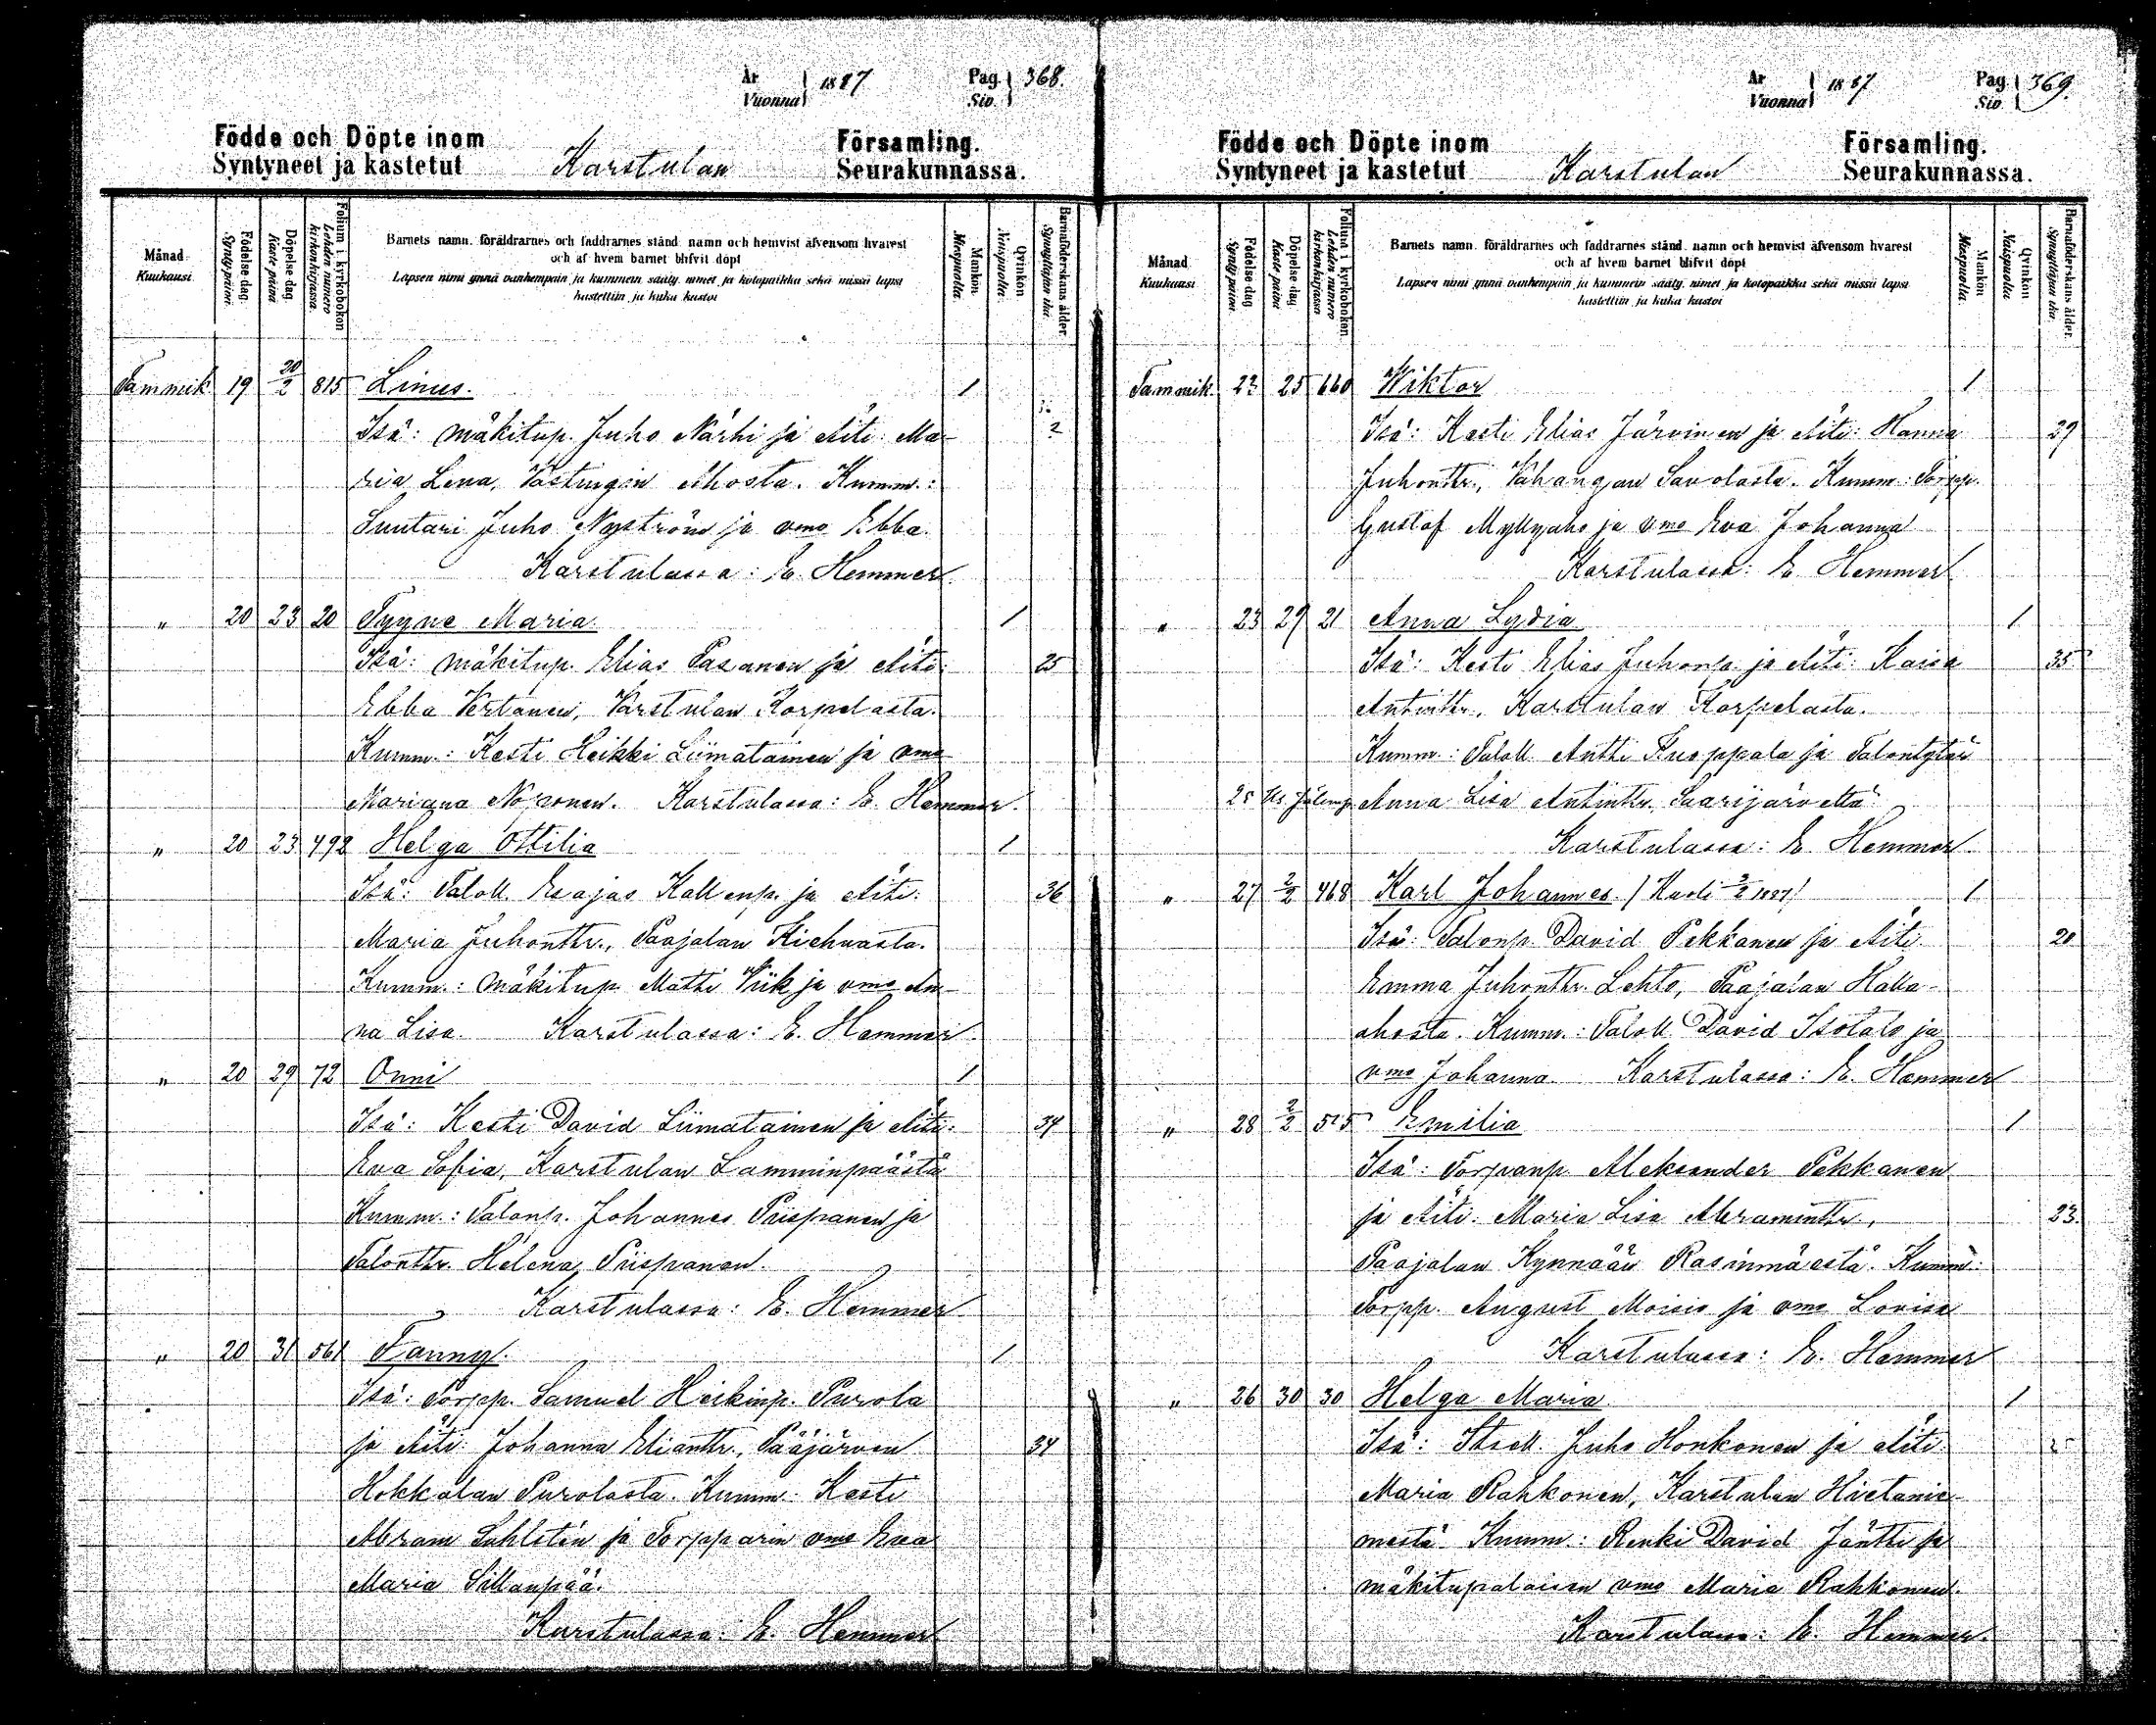 År
Vuonna } 1887
Pag.
Siv. } 368.
Födde och Döpte inom
Syntyneet ja kastetut
Karstulan
Församling.
Seurakunnassa.
Månad
Kuukausi.
Födelse dag.
Syntypäivä.
Döpelse dag.
Kaste päivä
Folium i kyrkoboken
Lehden numero kirkonkirjassa.
Barnets namn, föräldrarnes och faddrarnes stånd, namn och hemvist äfvensom hvarest
och af hvem barnet blifvit döpt
Lapsen nimi ynnä vanhempain ja kummein sääty, nimet ja kotopaikka sekä missä lapsi
kastettiin ja kuka kastoi
Mankön
Miespuolia.
Qvinkön
Naispuolia.
Barnaföderskans ålder.
Synnyttäjän ikä.
Tammik 19 20/2 815 Linus. 1
Isä: mäkitup. Juho Närhi ja Äiti: Ma-
ria Lena, Västingin Ahosta. Kumm.:
Suutari Juho Nyström ja vmo Ebba.
Karstulassa: E. Hemmer
" 20 23 20 Tyyne Maria 1
Isä: mäkitup. Elias Pasanen ja Äiti: 25
Ebba Vertanen, Karstulan Korpelasta.
Kumm.: Kesti Heikki Liimatainen ja vmo
Mariana Noponen. Karstulassa: E. Hemmer.
" 20 23 492 Helga Ottilia 1
Isä: Taloll. Esajas Kallenp. ja Äiti: 36
Maria Juhontr., Paajalan Kiehuasta.
Kumm.: mäkitup Matti Wiik ja vmo An-
na Lisa. Karstulassa: E. Hemmer.
" 20 29 72 Onni 1
Isä: Kesti David Liimatainen ja Äiti: 34
Eva Sofia, Karstulan Lamminpäästä
Kumm.: Talonp. Johannes Piispanen ja
Talonttr. Helena Piispanen.
Karstulassa: E. Hemmer
" 20 31 561 Fanny. 1
Isä: Torpp. Samuel Heikinp. Purola
ja Äiti: Johanna Elianttr., Pääjärven 34
Hokkalan Purolasta. Kumm: Kesti
Abram Sahlstén ja Torpparin vmo Eva
Maria Sillanpää.
Karstulassa: E. Hemmer
År
Vuonna } 1887
Pag.
Siv. } 369.
Födde och Döpte inom
Syntyneet ja kastetut
Karstulan
Församling.
Seurakunnassa.
Månad
Kuukausi
Födelse dag
Synty päivä
Döpelse dag
Kaste päivä
Folium i kyrkoboken
Lehden numero kirkonkirjassa
Barnets namn, föräldrarnes och faddrarnes stånd, namn och hemvist äfvensom hvarest
och af hvem barnet blifvit döpt
Lapsen nimi ynnä vanhempain ja kummein sääty, nimet ja kotopaikka sekä missä lapsi
kastettiin ja kuka kastoi
Mankön
Miespuolia.
Qvinkön
Naispuolia
Barnaföderskans ålder.
Synnyttäjän ikä.
Tammik. 22 25 660 Wiktor 1
Isä: Kesti Elias Järvinen ja Äiti: Hanna 29
Juhonttr., Vahangan Savolasta. Kumm: Torpp.
Gustaf Myllyaho ja vmo Eva Johanna
Karstulassa: E. Hemmer
" 23 29 21 Anna Lydia 1
Isä: Kesti Elias Juhonp. ja Äiti: Kaisa 35
Antinttr., Karstulan Korpelasta.
Kumm.: Taloll. Antti Kuoppala ja Talontytär
Anna Lisa Antinttr. Saarijärveltä
Karstulassa: E. Hemmer.
" 27 2/2 468 Karl Johannes. / Kuoli 3/2 1887/ 1
Isä: Talonp. David Pekkanen ja Äiti 20
Emma Juhonttr. Lehto, Paajalan Halla-
ahosta. Kumm.: Taloll David Isotalo ja
vmo Johanna. Karstulassa: E. Hemmer
" 28 2/2 515 Emilia 1
Isä: Torpanp. Aleksander Pekkanen
ja Äiti: Maria Lisa Abraminttr., 23.
Paajalan Kynnään Rasinmäestä. Kumm:
Torpp. August Moisio ja vmo Lovisa
Karstulassa: E. Hemmer
" 26 30 30 Helga Maria 1
Isä: Juho Honkonen ja Äiti:
Maria Rahkonen, Karstulan Hietanie-
mestä. Kumm.: Renki David Jäntti ja
mäkitupalaisen vmo Maria Rahkonen.
Karstulassa: E. Hemmer.